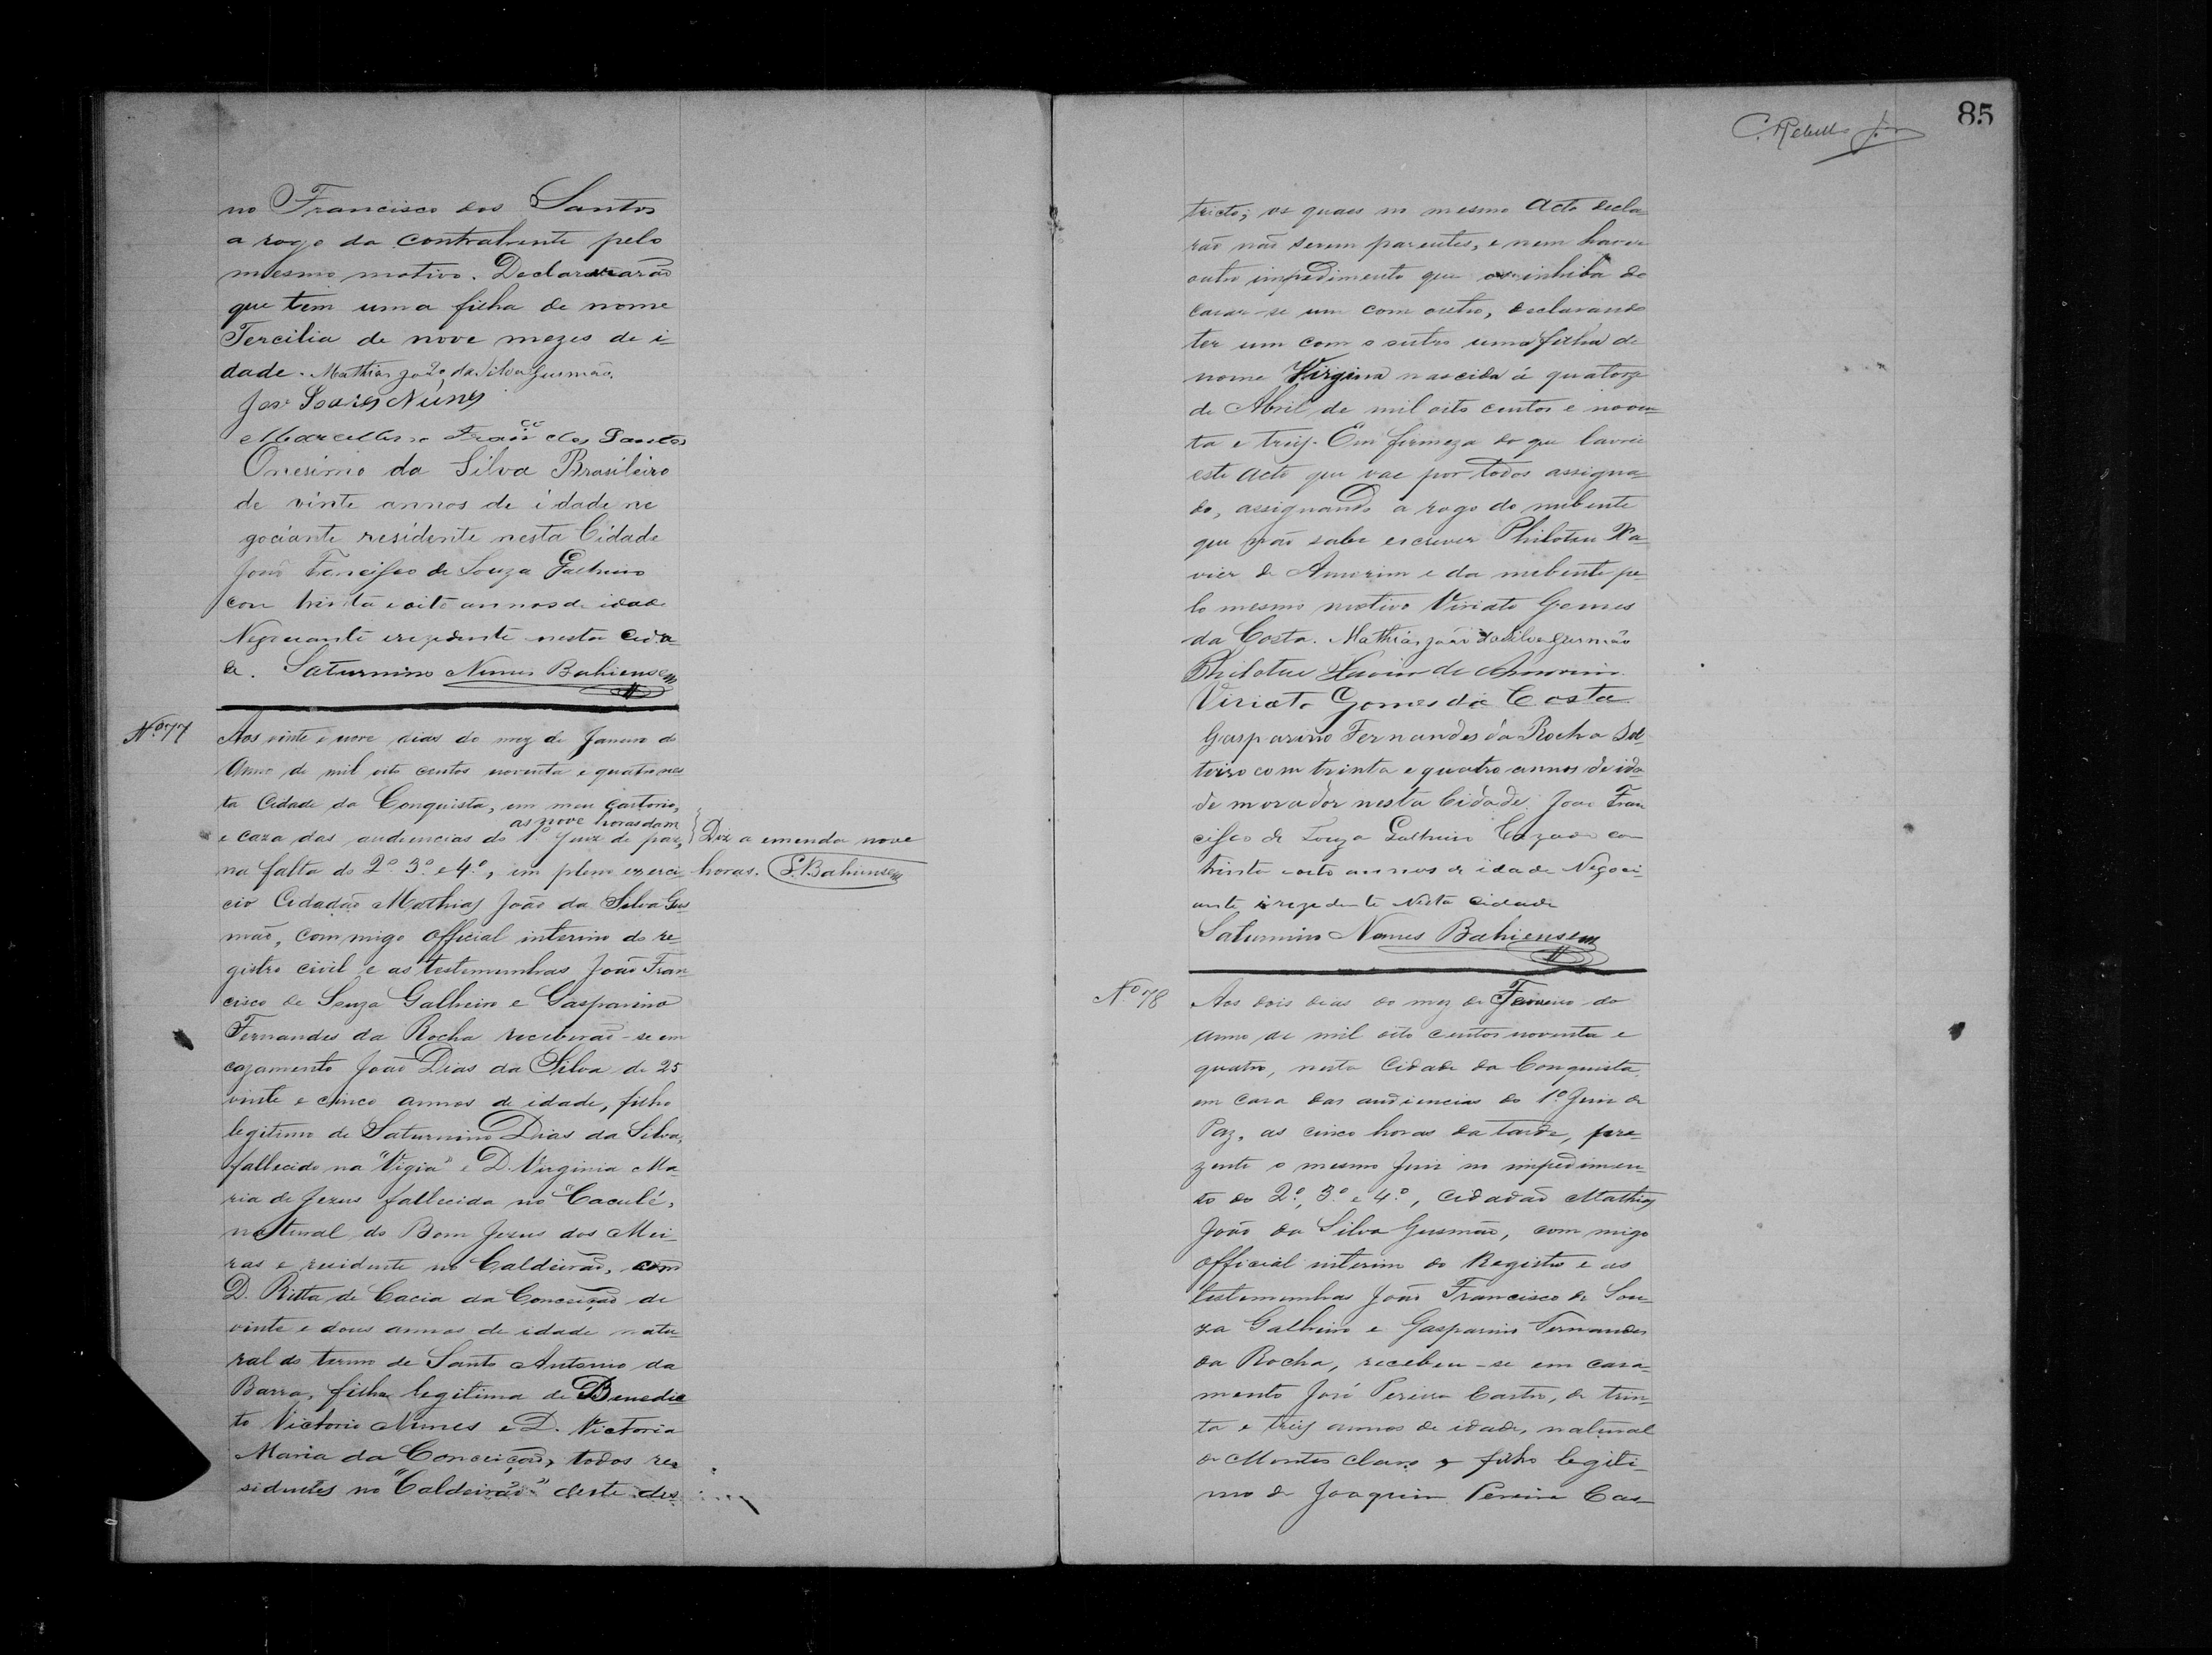 no Francisco dos Santos
a rogo da contrahente pelo
mesmo motivo. Declararão
que tem uma filha de nome
Tercilia de nove mezes de i-
dade. Mathias João da Silva Gusmão.
José Soares Nunes
Marcellino Franco dos Santos
Onesimo da Silva Brasileiro
de vinte annos de idade ne
gociante residente nesta Cidade
João Francisco de Souza Galheiro
com trinta e oito annos de idade
Negociante e rezidente nesta Cida
de. Saturnino Nunes Bahiense
Nº 77
Aos vinte e nove dias do mez de Janeiro do
Anno de mil oito centos noventa e quatro nes
ta Cidade da Conquista, em meu cartorio,
as nove horas da m
e caza das audiencias do 1º Juiz de paz,
na falta do 2º 3º e 4º, em pleno exerci-
cio Cidadão Mathias João da Silva Gus
mão, commigo Official interino do re-
gistro civil e as testemunhas João Fran
cisco de Souza Galheiro e Gasparino
Fernandes da Rocha receberão-se em
cazamento João Dias da Silva de 25
vinte e cinco annos de idade, filho
legitimo de Saturnino Dias da Silva,
fallecido na "Vigia" e D. Virginia Ma
ria de Jezus fallecida no "Caculé,
natural do Bom Jezus dos Mei-
ras e residente no Caldeirão, com
D. Ritta de Cacia da Conceição de
vinte e dous annos de idade natu-
ral do termo de Santo Antonio da
Barra, filha legitima de Benedic
to Victorio Nunes e D. Victoria
Maria da Conceição, todos re
sidentes no "Caldeirão" deste des
Diz a emenda nove
horas. S. Bahiense
C. Rebello Jor
85
tricto; os quaes no mesmo Acto decla
rão não serem parentes, e nem haver
outro impedimento que os inhiba de
casar-se um com outro, declarando
ter um com o outro uma filha de
nome Virginia nascida á quatorze
de Abril de mil oito centos e noven-
ta e treis. Em firmeza do que lavrei
este acto que vae por todos assigna-
do, assignando a rogo do nubente
que não sabe escrever Philoteu Xa-
vier de Amorim e da nubente pe-
lo mesmo motivo Viriato Gomes
da Costa. Mathias João da Silva Gusmão
Philoteu Xavier de Amorim
Viriato Gomes da Costa
Gasparino Fernandes da Rocha Sol-
teiro com trinta e quatro annos de ida
de morador nesta Cidade. João Fran
cisco de Souza Galheiro Cazado com
trinta e oito annos de idade Negoci-
ante e rezedente Nesta Cidade
Saturnino Nunes Bahiense
Nº 78
Aos dois dias do mez de Fevereiro do
anno de mil oito centos noventa e
quatro, nesta Cidade da Conquista,
em casa das audiencias do 1º Juiz de
Paz, as cinco horas da tarde, pre-
zente o mesmo Juiz no impedimen-
to do 2º, 3º e 4º, Cidadão Mathias
João da Silva Gusmão, com migo
official interino do Registro e as
testemunhas João Francisco de Sou-
za Galheiro e Gasparino Fernandes
da Rocha, recebeu-se em casa-
mento José Pereira Castro, de trin-
ta e treis annos de idade, natural
de Montes Claros filho legiti-
mo de Joaquim Pereira Cas-